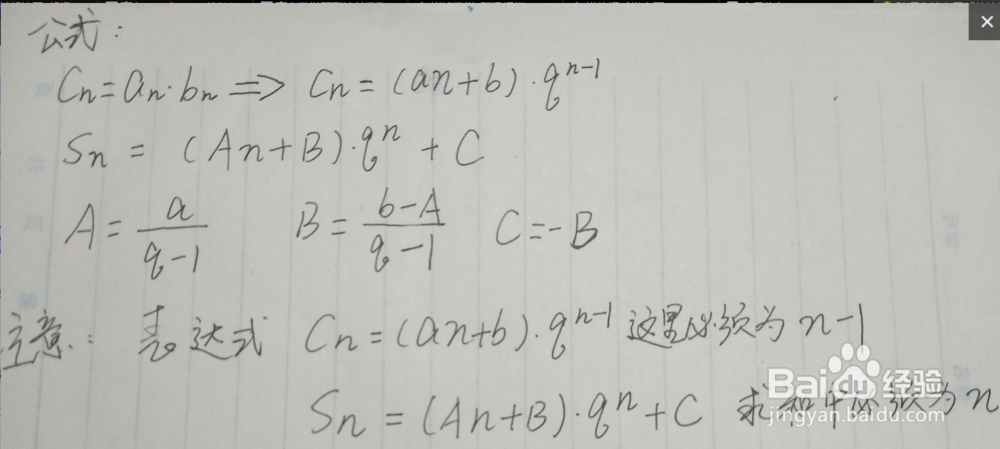 公式：
Cn=an·bn ⇒ Cn=(an+b)·q^{n-1}
Sn = (An+B)·q^n + C
A=\frac{a}{q-1} B=\frac{b-A}{q-1} C=-B
注意：表达式 Cn=(an+b)·q^{n-1} 这里必须为 n-1
Sn=(An+B)·q^n+C 求和中必须为 n
Baidu 经验
jingyan.baidu.com